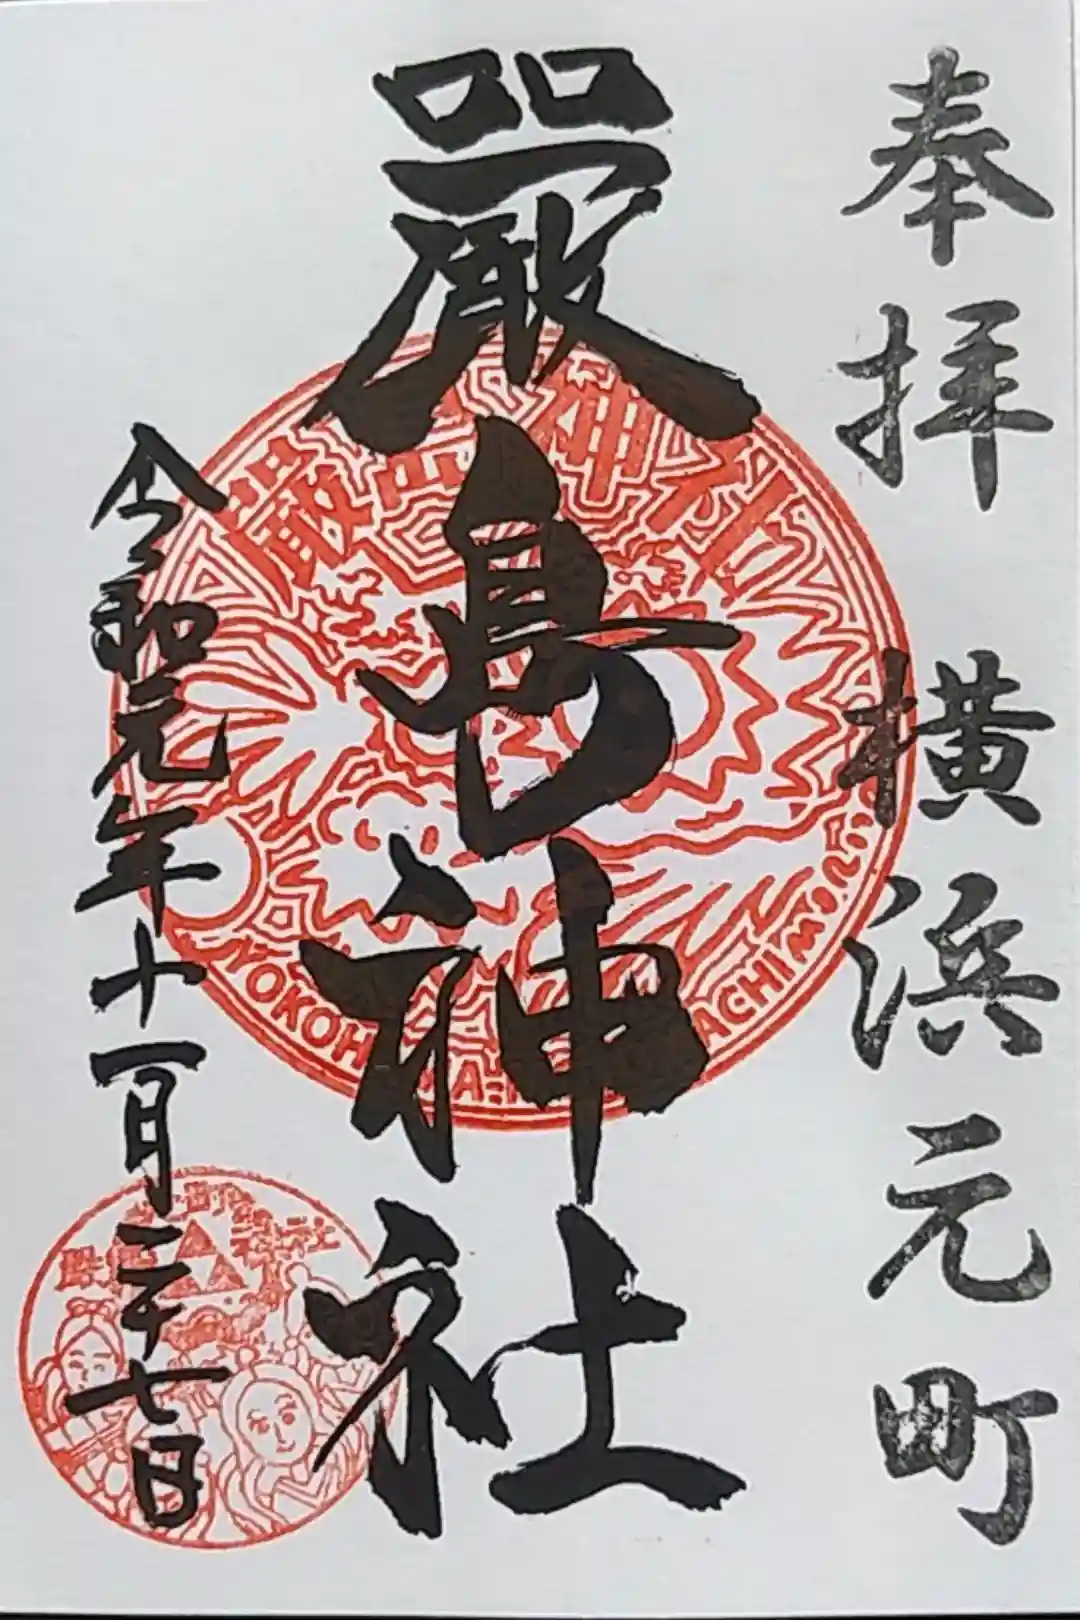 奉拝 横浜元町
嚴島神社
令和元年十一月二十七日
嚴島神社
YOKOHAMA:MOTOMACHI